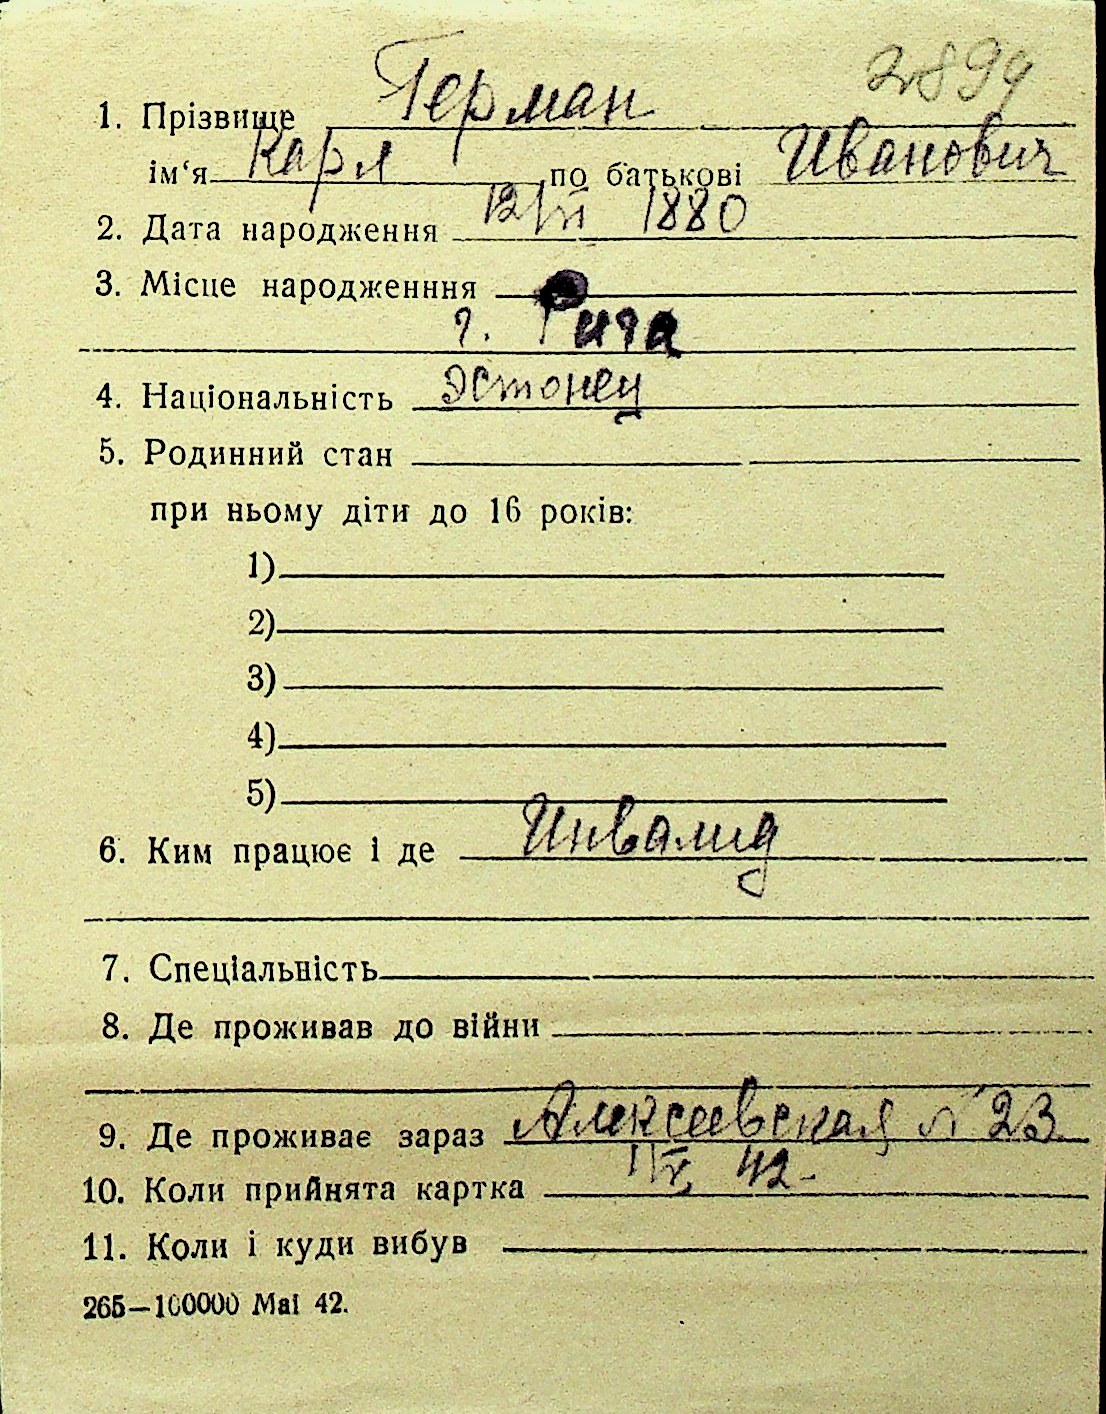 2899
1. Прізвище Герман
ім‘я Карл по батькові Иванович
2. Дата народження 12/VI 1880
3. Місце народженння
г. Рига
4. Національність Эстонец
5. Родинний стан
при ньому діти до 16 років:
1)
2)
3)
4)
5)
6. Ким працює і де Инвалид
7. Спеціальність
8. Де проживав до війни
9. Де проживає зараз Алексеевская № 23
10. Коли прийнята картка 42-
11. Коли і куди вибув
265—100000 Mai 42.